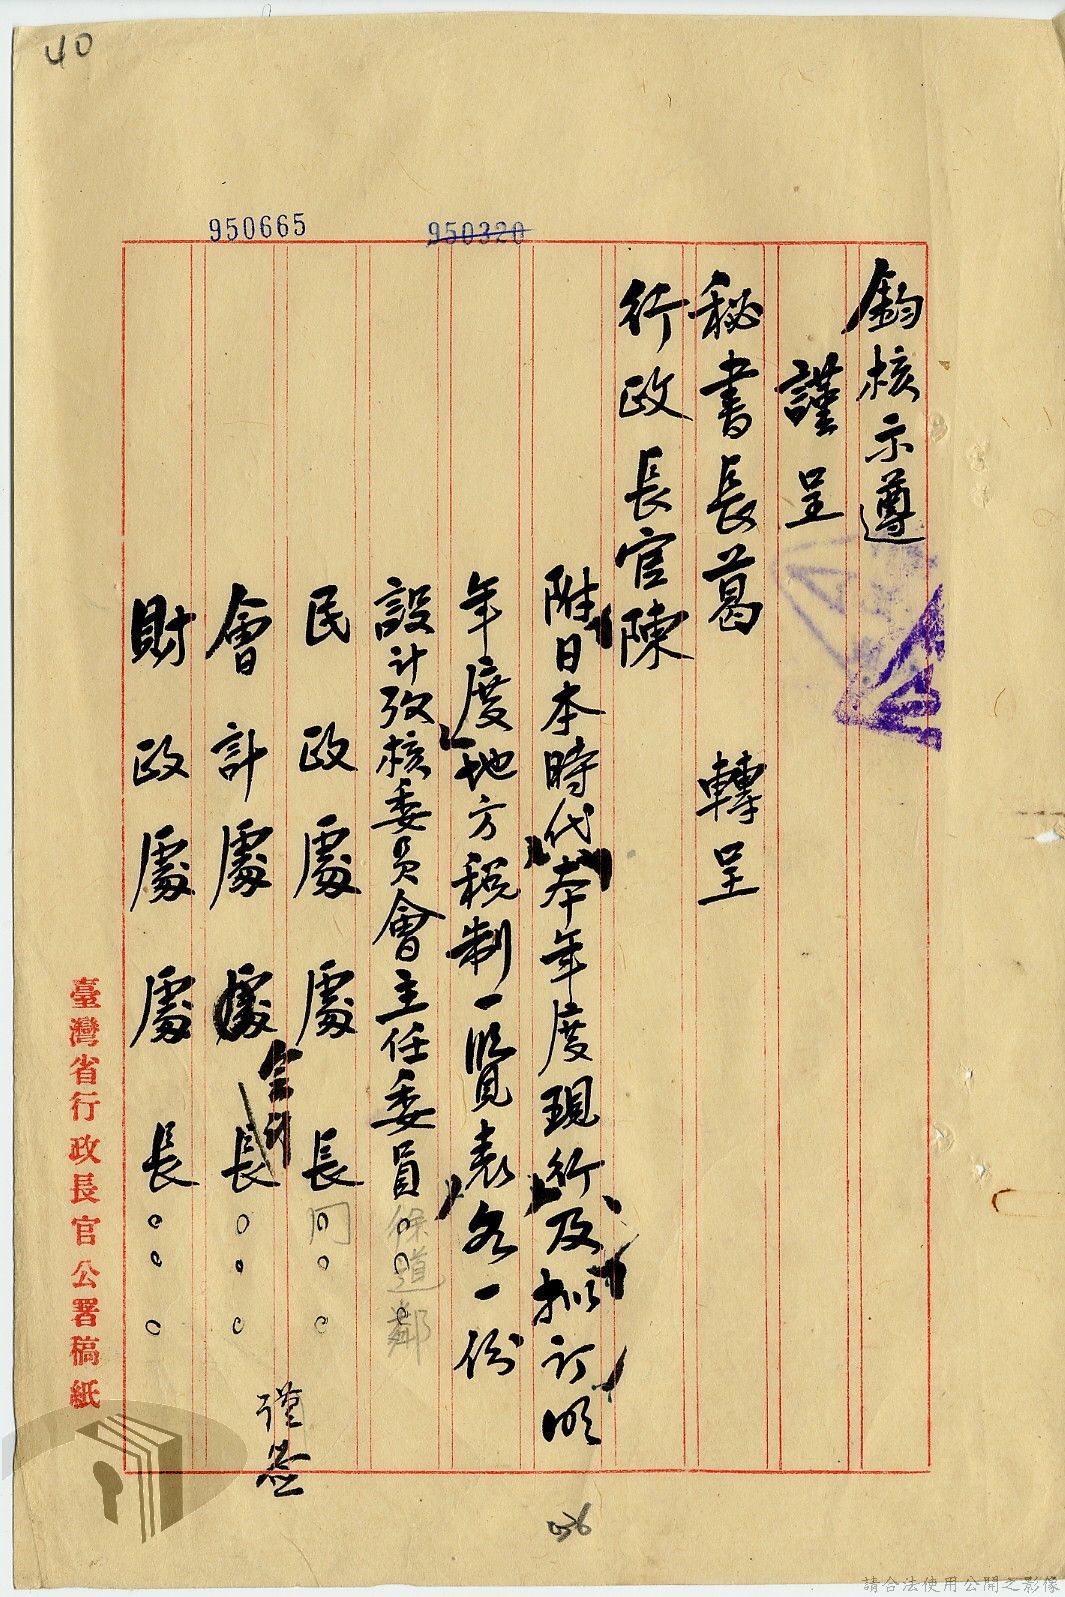 40
950665
950320
鈞核示遵
謹呈
秘書長葛 轉呈
行政長官陳
附日本時代本年度現行及擬訂明
年度地方稅制一覽表各一份
設計攷核委員會主任委員徐道鄰
民政處處長周〇〇〇
會計處長〇〇〇
會計
財政處處長〇〇〇
謹簽
臺灣省行政長官公署稿紙
36
請合法使用公開之影像